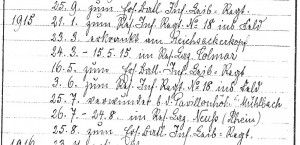 25.9. zum Ers. Batl. Inf. Leib-Regt.
1915 21.1. zum Res. Inf. Regt. № 18 ins Feld
23.3. erkrankt am Reichsackerkopf
24.3. - 15.5. im Res. Laz. Colmar
16.5. zum Ers. Batl. Inf. Leib-Regt.
3.6. zum Res. Inf. Regt. № 18 ins Feld
25.7. verwundet b. Mühlbach
26.7. - 24.8. im Res. Laz. Neuß (Rhein)
25.8. zum Ers. Batl. Inf. Leib-Regt.
1916